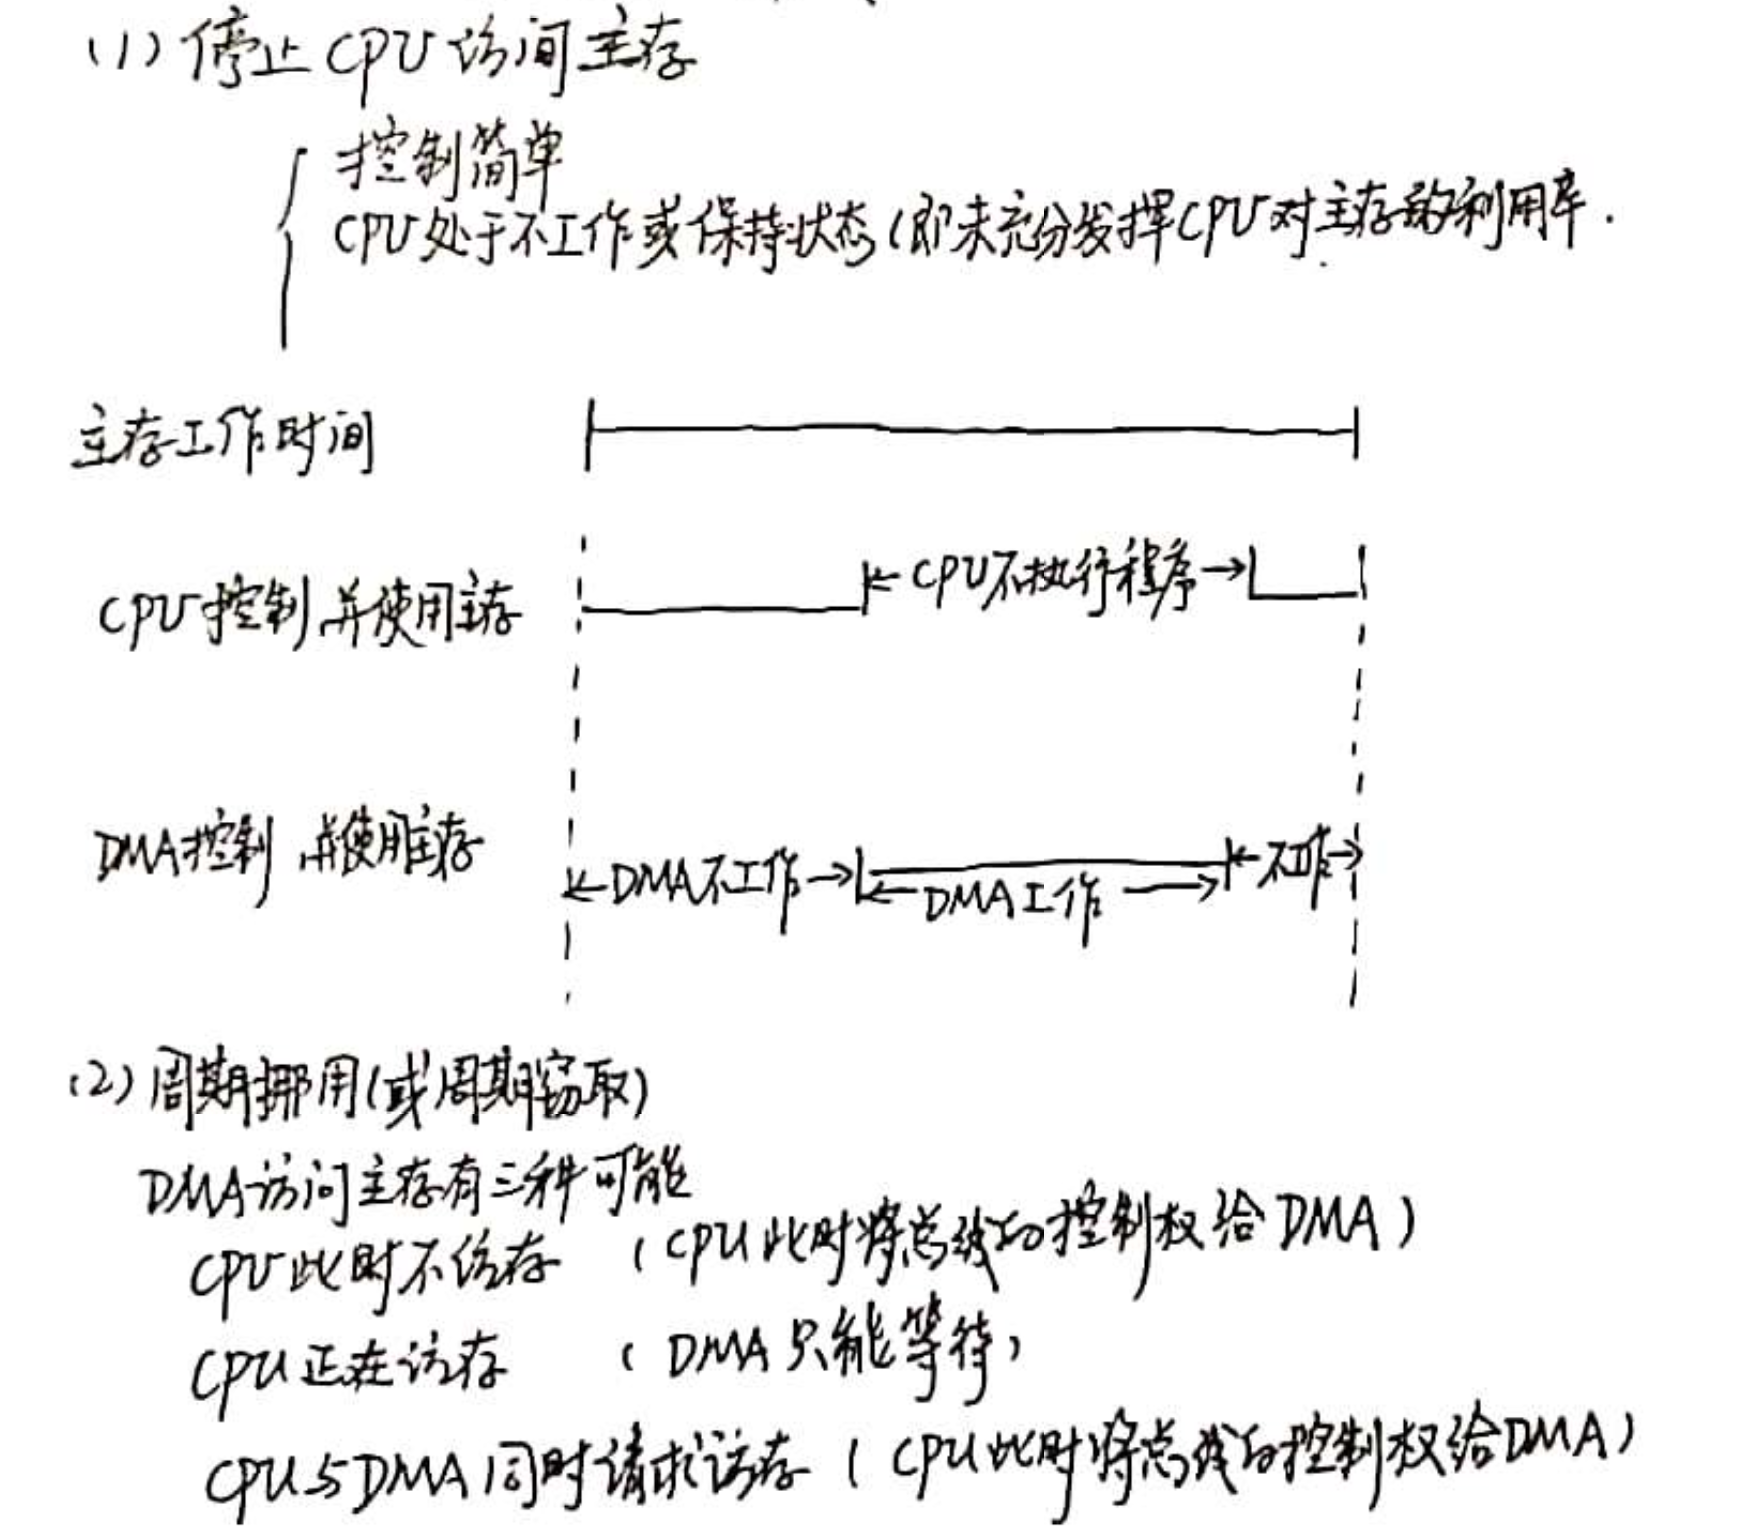 (1) 停止CPU访问主存
控制简单
CPU处于不工作或保持状态(即未充分发挥CPU对主存的利用率.
主存工作时间
CPU不执行程序
CPU控制并使用主存
DMA控制并使用主存
DMA不工作 DMA工作 不工作
(2) 周期挪用(或周期窃取)
DMA访问主存有三种可能
CPU此时不访存 (CPU此时将总线的控制权给DMA)
CPU正在访存 (DMA只能等待)
CPU与DMA同时请求访存 (CPU此时将总线的控制权给DMA)